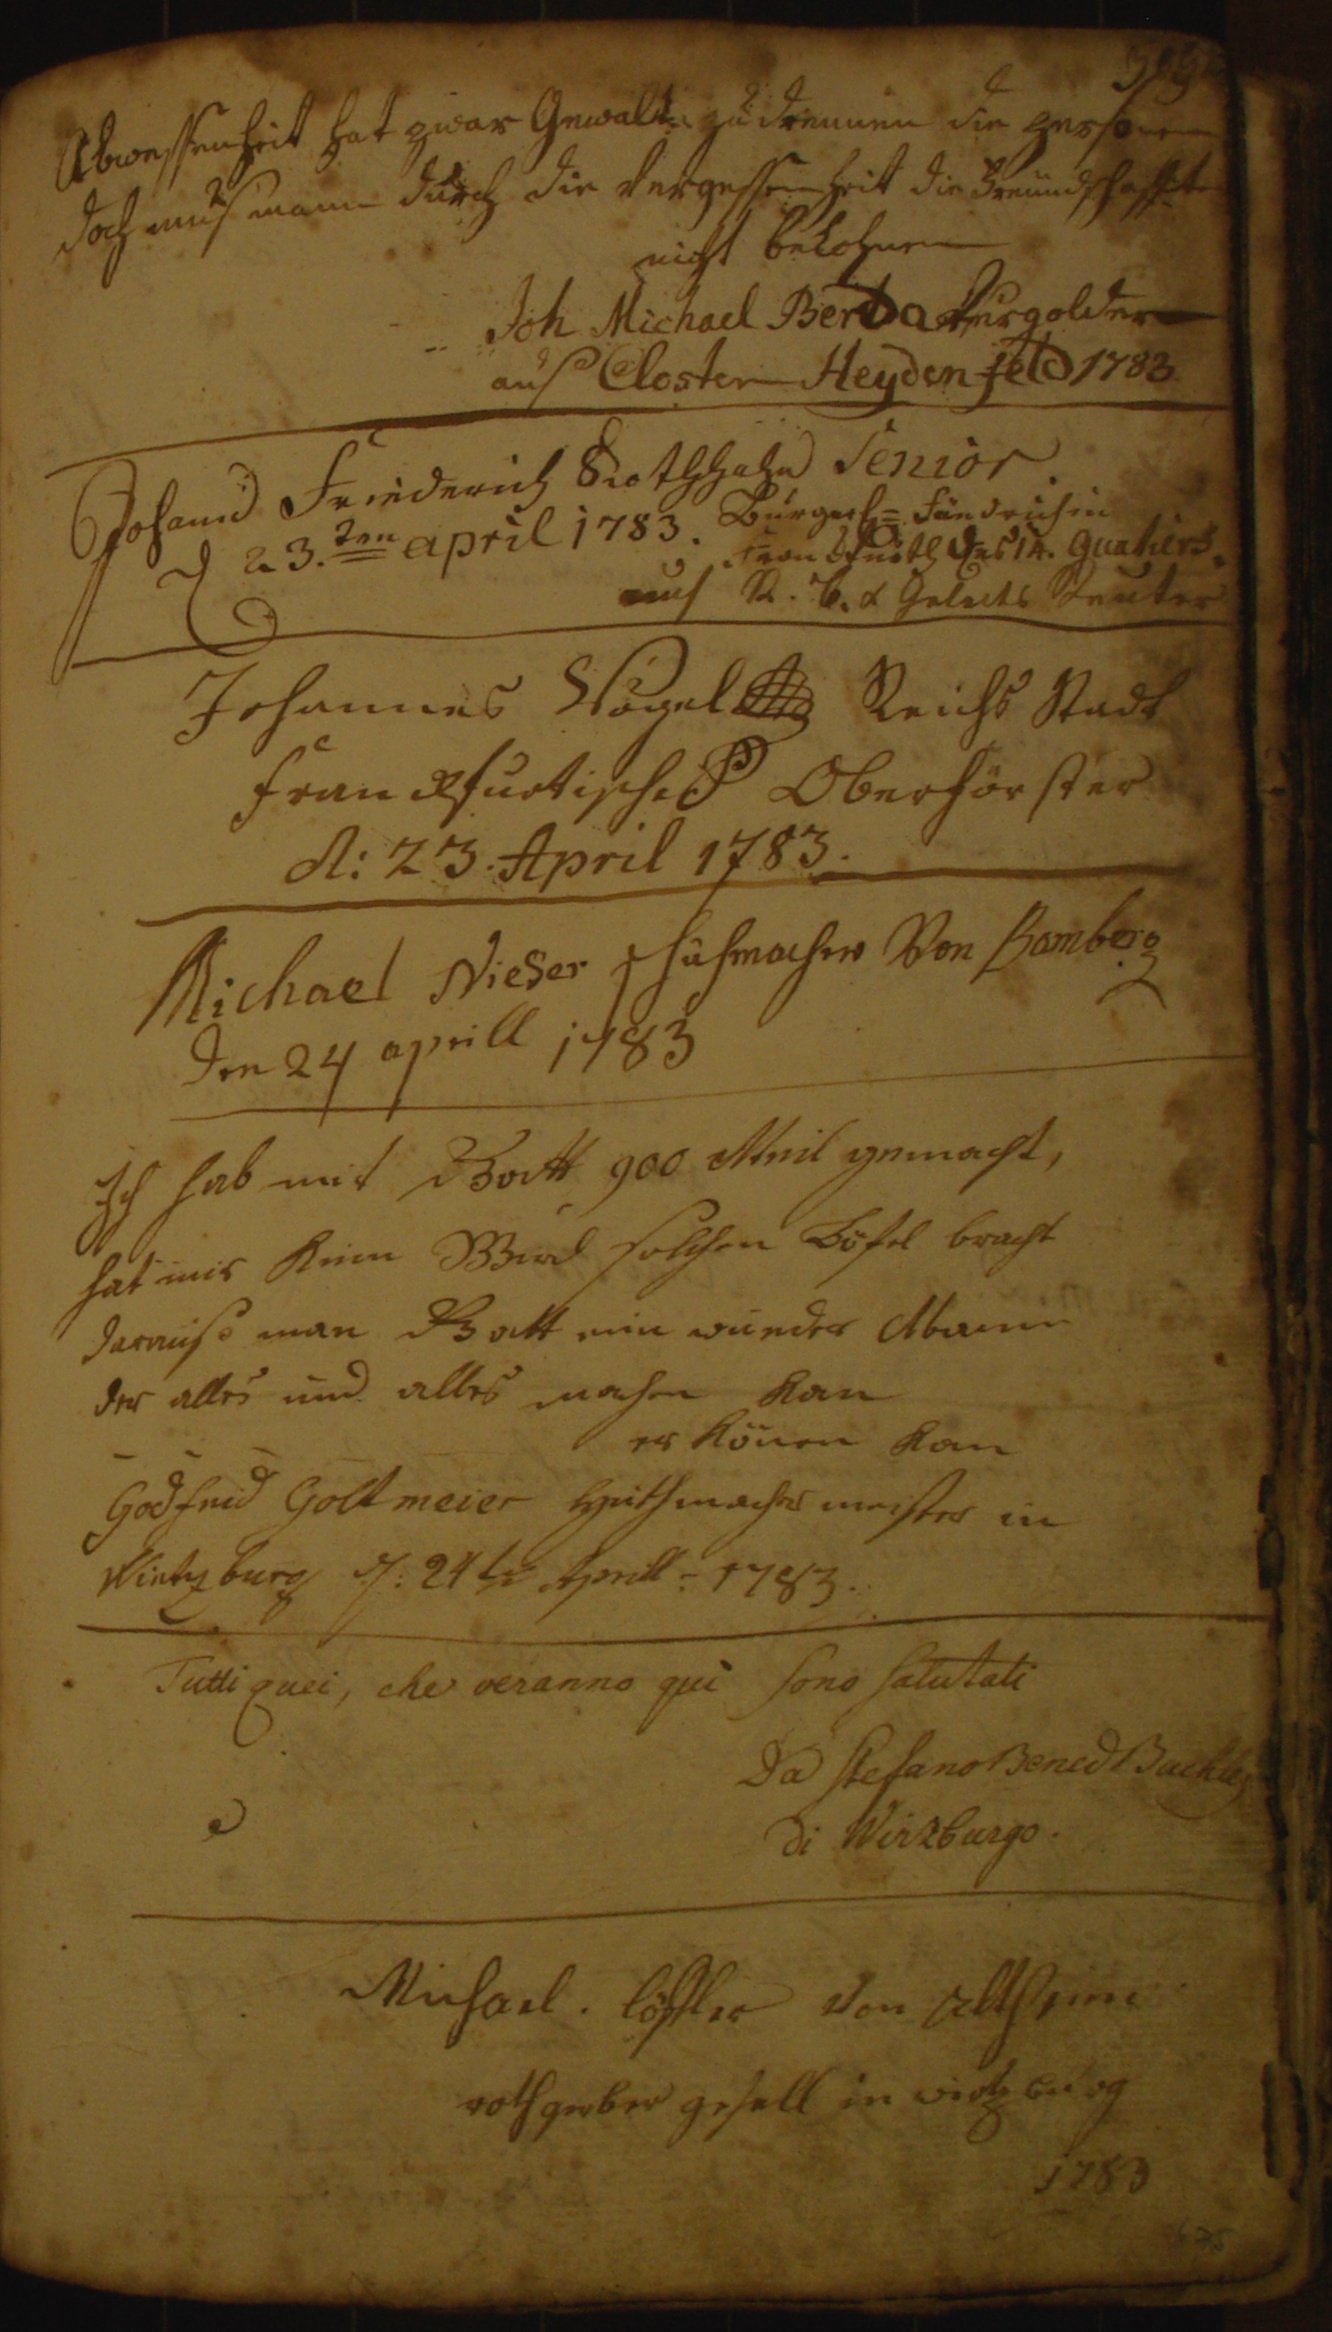 Abwessenheit hat zwar Gewalt zu drennen die persone
doch muß mann durch die Vergessenheit die Freündschaffte
nicht belohnen
Joh Michael Berda Vergolder
auß Closter Heydenfeld 1783
Johann Friederich Rothhahn Senior.
d 23.ten april 1783. Bürgerl= Fändrich in
des 14. Quatiers.
auch Geleits Reuter
Johannes Vogel Reichs Stadt
Franckfurtischer Oberförster
d: 23. April 1783.
Michael Nieser schuhmacher Von Bamberg
den 24 aprill 1783
Ich hab mit Gott 900 Meil gemacht,
hat mir kein Wird solchen Löfel bracht
darauß man Gott ein wunder Mann
der alles und alles machen kan
er könen kan
Godfrid Goltmeier Huthmacher meister in
Wirtzburg d: 24te Aprill 1783.
Tutti quei, che veranno qui sono salutati
Da Stefano Bened
di Wirzburgo.
Michael. löffler von altheim
rothgerber gesell in wirtzburg
1783
675